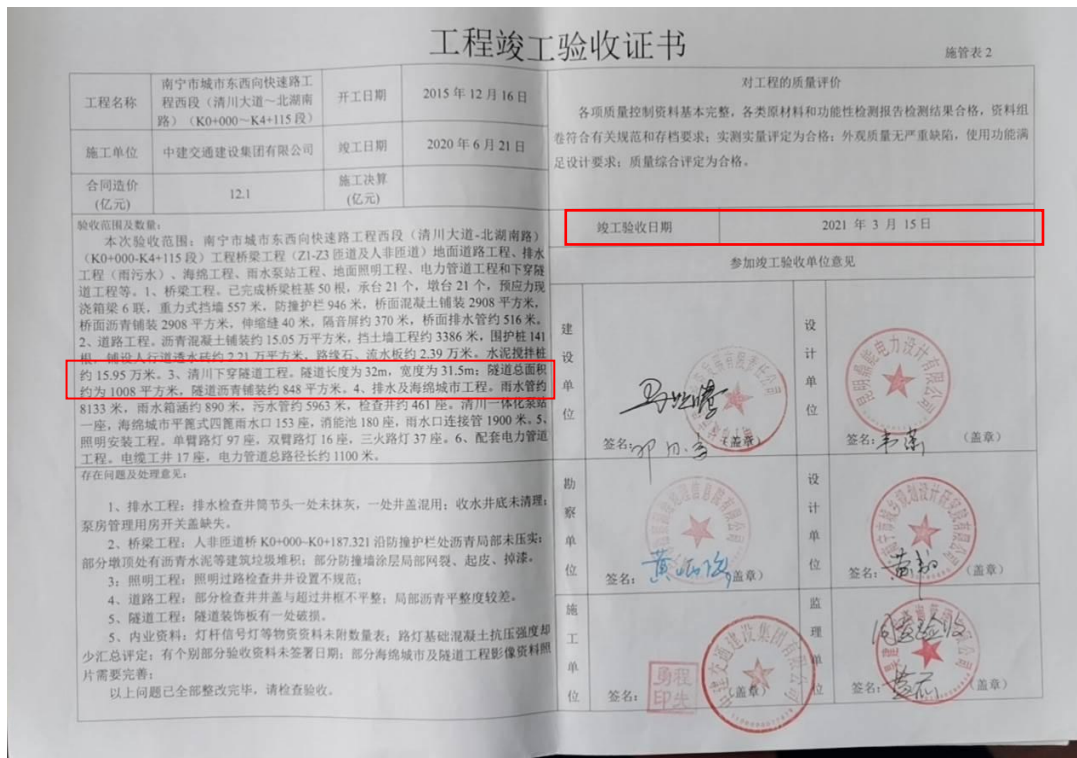 工程竣工验收证书
施管表 2
工程名称
南宁市城市东西向快速路工
程西段（清川大道～北湖南
路）（K0+000～K4+115 段）
开工日期
2015 年 12 月 16 日
施工单位
中建交通建设集团有限公司
竣工日期
2020 年 6 月 21 日
合同造价
(亿元)
12.1
施工决算
(亿元)
验收范围及数量：
本次验收范围：南宁市城市东西向快速路工程西段（清川大道-北湖南路）
（K0+000-K4+115 段）工程桥梁工程（Z1-Z3 匝道及人非匝道）地面道路工程、排水
工程（雨污水）、海绵工程、雨水泵站工程、地面照明工程、电力管道工程和下穿隧
道工程等。1、桥梁工程。已完成桥梁桩基 50 根，承台 21 个，墩台 21 个，预应力现
浇箱梁 6 联，重力式挡墙 557 米，防撞护栏 946 米，桥面混凝土铺装 2908 平方米，
桥面沥青铺装 2908 平方米，伸缩缝 40 米，隔音屏约 370 米，桥面排水管约 516 米。
2、道路工程。沥青混凝土铺装约 15.05 万平方米，挡土墙工程约 3386 米，围护桩 141
根，铺设人行道透水砖约 2.21 万平方米，路缘石、流水板约 2.39 万米。水泥搅拌桩
约 15.95 万米。3、清川下穿隧道工程。隧道长度为 32m，宽度为 31.5m；隧道总面积
约为 1008 平方米，隧道沥青铺装约 848 平方米。4、排水及海绵城市工程。雨水管约
8133 米，雨水箱涵约 890 米，污水管约 5963 米，检查井约 461 座。清川一体化泵站
一座，海绵城市平篦式四篦雨水口 153 座，消能池 180 座，雨水口连接管 1900 米。5、
照明安装工程。单臂路灯 97 座，双臂路灯 16 座，三火路灯 37 座。6、配套电力管道
工程。电缆工井 17 座，电力管道总路径长约 1100 米。
存在问题及处理意见：
1、排水工程：排水检查井筒节头一处未抹灰，一处井盖混用；收水井底未清理；
泵房管理用房开关盖缺失。
2、桥梁工程：人非匝道桥 K0+000~K0+187.321 沿防撞护栏处沥青局部未压实；
部分墩顶处有沥青水泥等建筑垃圾堆积；部分防撞墙涂层局部网裂、起皮、掉漆。
3：照明工程：照明过路检查井井设置不规范；
4、道路工程：部分检查井井盖与超过井框不平整；局部沥青平整度较差。
5、隧道工程：隧道装饰板有一处破损。
5、内业资料：灯杆信号灯等物资资料未附数量表；路灯基础混凝土抗压强度却
少汇总评定；有个别部分验收资料未签署日期；部分海绵城市及隧道工程影像资料照
片需要完善；
以上问题已全部整改完毕，请检查验收。
对工程的质量评价
各项质量控制资料基本完整，各类原材料和功能性检测报告检测结果合格，资料组
卷符合有关规范和存档要求；实测实量评定为合格；外观质量无严重缺陷，使用功能满
足设计要求；质量综合评定为合格。
竣工验收日期
2021 年 3 月 15 日
参加竣工验收单位意见
建设单位
签名：
（盖章）
设计单位
签名：
（盖章）
勘察单位
签名：
（盖章）
设计单位
签名：
（盖章）
施工单位
签名：
（盖章）
中建交通建设集团有限公司
监理单位
同意验收
签名：
（盖章）